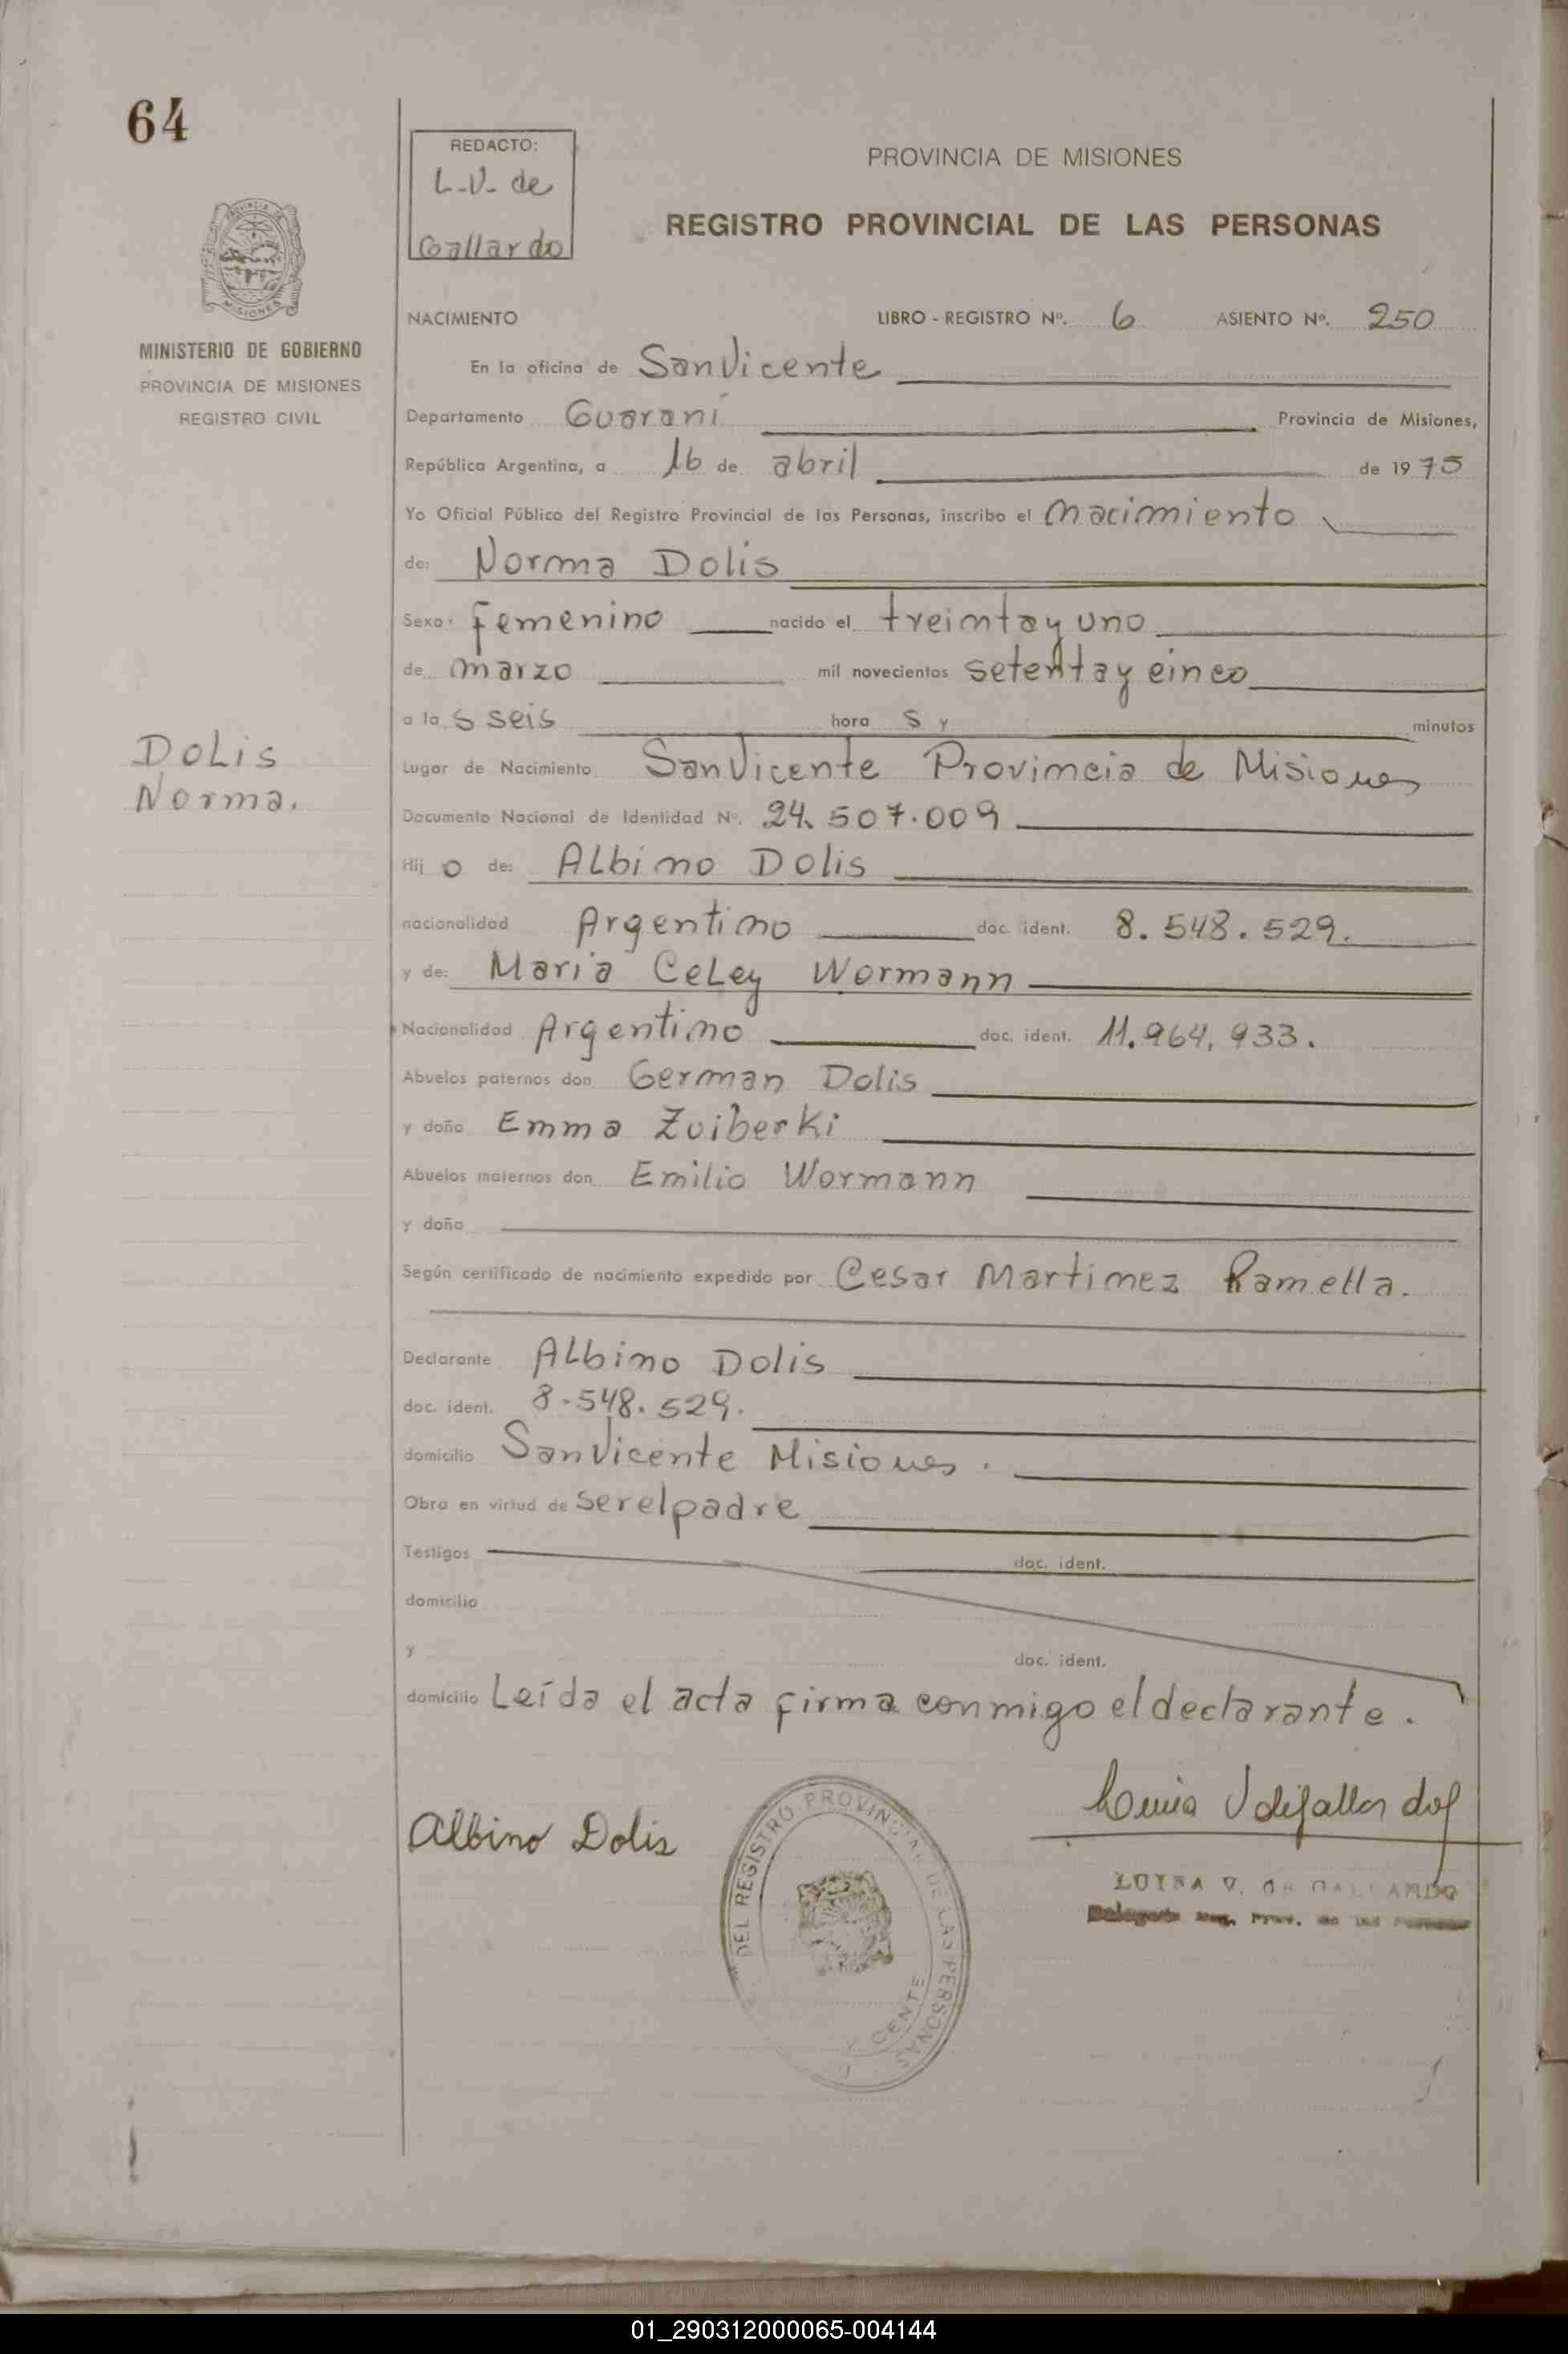 64
REDACTO:
L-V- de
Gallardo
PROVINCIA DE MISIONES
REGISTRO PROVINCIAL DE LAS PERSONAS
PROVINCIA DE
MISIONES
MINISTERIO DE GOBIERNO
PROVINCIA DE MISIONES
REGISTRO CIVIL
NACIMIENTO LIBRO - REGISTRO Nº. 6 ASIENTO Nº. 250
En la oficina de San Vicente
Departamento Guarani Provincia de Misiones,
República Argentina, a 16 de abril de 1975
Yo Oficial Público del Registro Provincial de las Personas, inscribo el nacimiento
de: Norma Dolis
Sexo: Femenino nacido el treinta y uno
de marzo mil novecientos setenta y cinco
a la s seis hora s y minutos
DOLis
Norma.
Lugar de Nacimiento San Vicente Provincia de Misiones
Documento Nacional de Identidad Nº. 24.507.009
Hij o de: ALbino Dolis
nacionalidad Argentino doc. ident. 8.548.529.
y de: Maria CeLey Wormann
Nacionalidad Argentino doc. ident. 11.964.933.
Abuelos paternos don German Dolis
y doña Emma Zuiberki
Abuelos maternos don Emilio Wormann
y doña
Según certificado de nacimiento expedido por Cesar Martinez Ramella.
Declarante ALbino Dolis
doc. ident. 8-548.529.
domicilio San Vicente Misiones.
Obra en virtud de ser el padre
Testigos doc. ident.
domicilio
y doc. ident.
domicilio Leída el acta firma conmigo el declarante.
Albino Dolis
DEL REGISTRO PROVINCIAL DE LAS PERSONAS
CENTE
LUISA V. DE GALLARDO
01_290312000065-004144